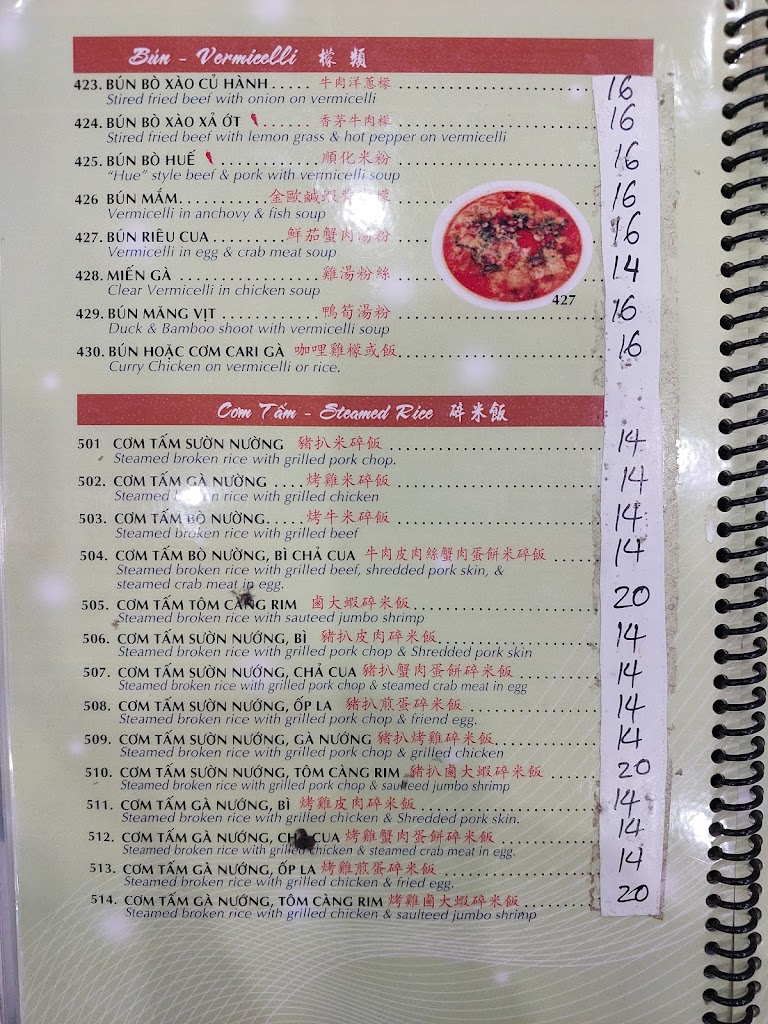 Bún - Vermicelli 檬 類
423. BÚN BÒ XÀO CỦ HÀNH..... 牛肉洋蔥檬 16
Stired fried beef with onion on vermicelli
424. BÚN BÒ XÀO XẢ ỚT 香茅牛肉檬 16
Stired fried beef with lemon grass & hot pepper on vermicelli
425. BÚN BÒ HUẾ 順化米粉 16
"Hue" style beef & pork with vermicelli soup
426 BÚN MẮM 金歐鹹蝦 檬 16
Vermicelli in anchovy & fish soup
427. BÚN RIÊU CUA 鮮茄蟹肉湯粉 16
Vermicelli in egg & crab meat soup
428. MIẾN GÀ 雞湯粉絲 14
Clear Vermicelli in chicken soup
429. BÚN MĂNG VỊT 鴨筍湯粉 16
Duck & Bamboo shoot with vermicelli soup
430. BÚN HOẶC CƠM CARI GÀ 咖哩雞檬或飯 16
Curry Chicken on vermicelli or rice.
427
Cơm Tấm - Steamed Rice 碎米飯
501 CƠM TẤM SƯỜN NƯỜNG 豬扒米碎飯 14
Steamed broken rice with grilled pork chop.
502. CƠM TẤM GÀ NƯỜNG .... 烤雞米碎飯 14
Steamed broken rice with grilled chicken
503. CƠM TẤM BÒ NƯỜNG..... 烤牛米碎飯 14
Steamed broken rice with grilled beef
504. CƠM TẤM BÒ NƯỜNG, BÌ CHẢ CUA 牛肉皮肉絲蟹肉蛋餅米碎飯 14
Steamed broken rice with grilled beef, shredded pork skin, &
steamed crab meat in egg.
505. CƠM TẤM TÔM CÀNG RIM 鹵大蝦碎米飯 20
Steamed broken rice with sauteed jumbo shrimp
506. CƠM TẤM SƯỜN NƯỚNG, BÌ 豬扒皮肉碎米飯 14
Steamed broken rice with grilled pork chop & Shredded pork skin
507. CƠM TẤM SƯỜN NƯỚNG, CHẢ CUA 豬扒蟹肉蛋餅碎米飯 14
Steamed broken rice with grilled pork chop & steamed crab meat in egg
508. CƠM TẤM SƯỜN NƯỚNG, ỐP LA 豬扒煎蛋碎米飯 14
Steamed broken rice with grilled pork chop & friend egg.
509. CƠM TẤM SƯỜN NƯỚNG, GÀ NƯỚNG 豬扒烤雞碎米飯 14
Steamed broken rice with grilled pork chop & grilled chicken
510. CƠM TẤM SƯỜN NƯỚNG, TÔM CÀNG RIM 豬扒鹵大蝦碎米飯 20
Steamed broken rice with grilled pork chop & sauteed jumbo shrimp
511. CƠM TẤM GÀ NƯỚNG, BÌ 烤雞皮肉碎米飯 14
Steamed broken rice with grilled chicken & Shredded pork skin.
512. CƠM TẤM GÀ NƯỚNG, CHẢ CUA 烤雞蟹肉蛋餅碎米飯 14
Steamed broken rice with grilled chicken & steamed crab meat in egg.
513. CƠM TẤM GÀ NƯỚNG, ỐP LA 烤雞煎蛋碎米飯 14
Steamed broken rice with grilled chicken & fried egg.
514. CƠM TẤM GÀ NƯỚNG, TÔM CÀNG RIM 烤雞鹵大蝦碎米飯 20
Steamed broken rice with grilled chicken & saulteed jumbo shrimp